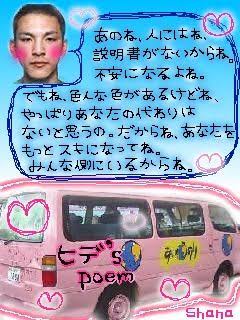 あのね、人にはね、
説明書がないからね。
不安になるよね。
でもね、色んな色があるけどね、
やっぱりあなたの代わりは
ないと思うの。だからね、あなたを
もっとスキになってね。
みんな側にいるからね。
ヒデ's
poem
Shana